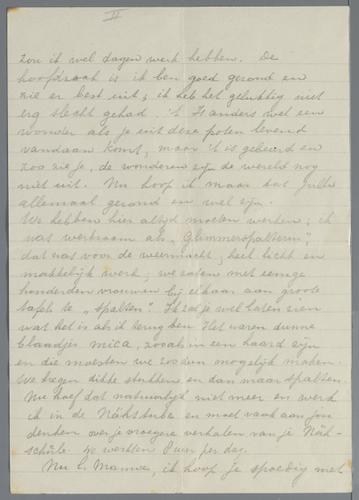 II
zou ik wel dagen werk hebben. De
hoofdzaak is ik ben goed gezond en
zie er best uit; ik heb het gelukkig niet
erg slecht gehad. 't Is anders wel een
wonder als je uit deze poten levend
vandaan komt, maar 't is gebeurd en
zoo zie je, de wonderen zijn de wereld nog
niet uit. Nu hoop ik maar dat jullie
allemaal gezond en wel zijn.
We hebben hier altijd moeten werken; ik
was werkzaam als "Glimmerspalterin",
dat was voor de weermacht, heel licht en
makkelijk werk; we zaten met eenige
honderden vrouwen bij elkaar aan groote
tafels te "spalten". Ik zal je wel laten zien
wat het is als ik terug ben. Het waren dunne
blaadjes mica, zooals in een haard zijn
en die moesten we zoo dun mogelijk maken.
We kregen dikke stukken en dan maar spalten.
Nu hoef dat natuurlijk niet meer en werk
ik in de Nähstube en moet vaak aan jou
denken over je vroegere verhalen van je Näh-
schule. We werkten 8 uur per dag.
Nu l. Mamme, ik hoop je spoedig met